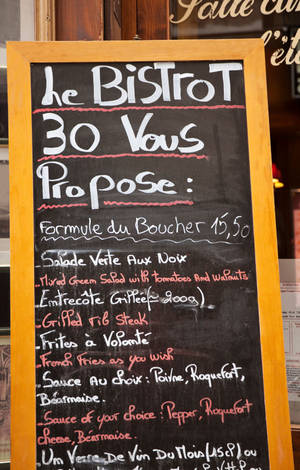 Salle cli
l'ét
Le BiSTroT
30 Vous
Propose :
Formule du Boucher 15,50
-Salade Verte Aux Noix
-Mixed Green Salad with tomatoes And Walnuts
-Entrecôte Grillée (≃ 200g)
-Grilled rib Steak
-Frites à Volonté
-French Fries as you wish
-Sauce Au choix : Poivre, Roquefort,
Béarnaise.
-Sauce of your choice : Pepper, Roquefort
cheese, Bearnaise.
Un Verre De Vin Du Mois (15cl) ou